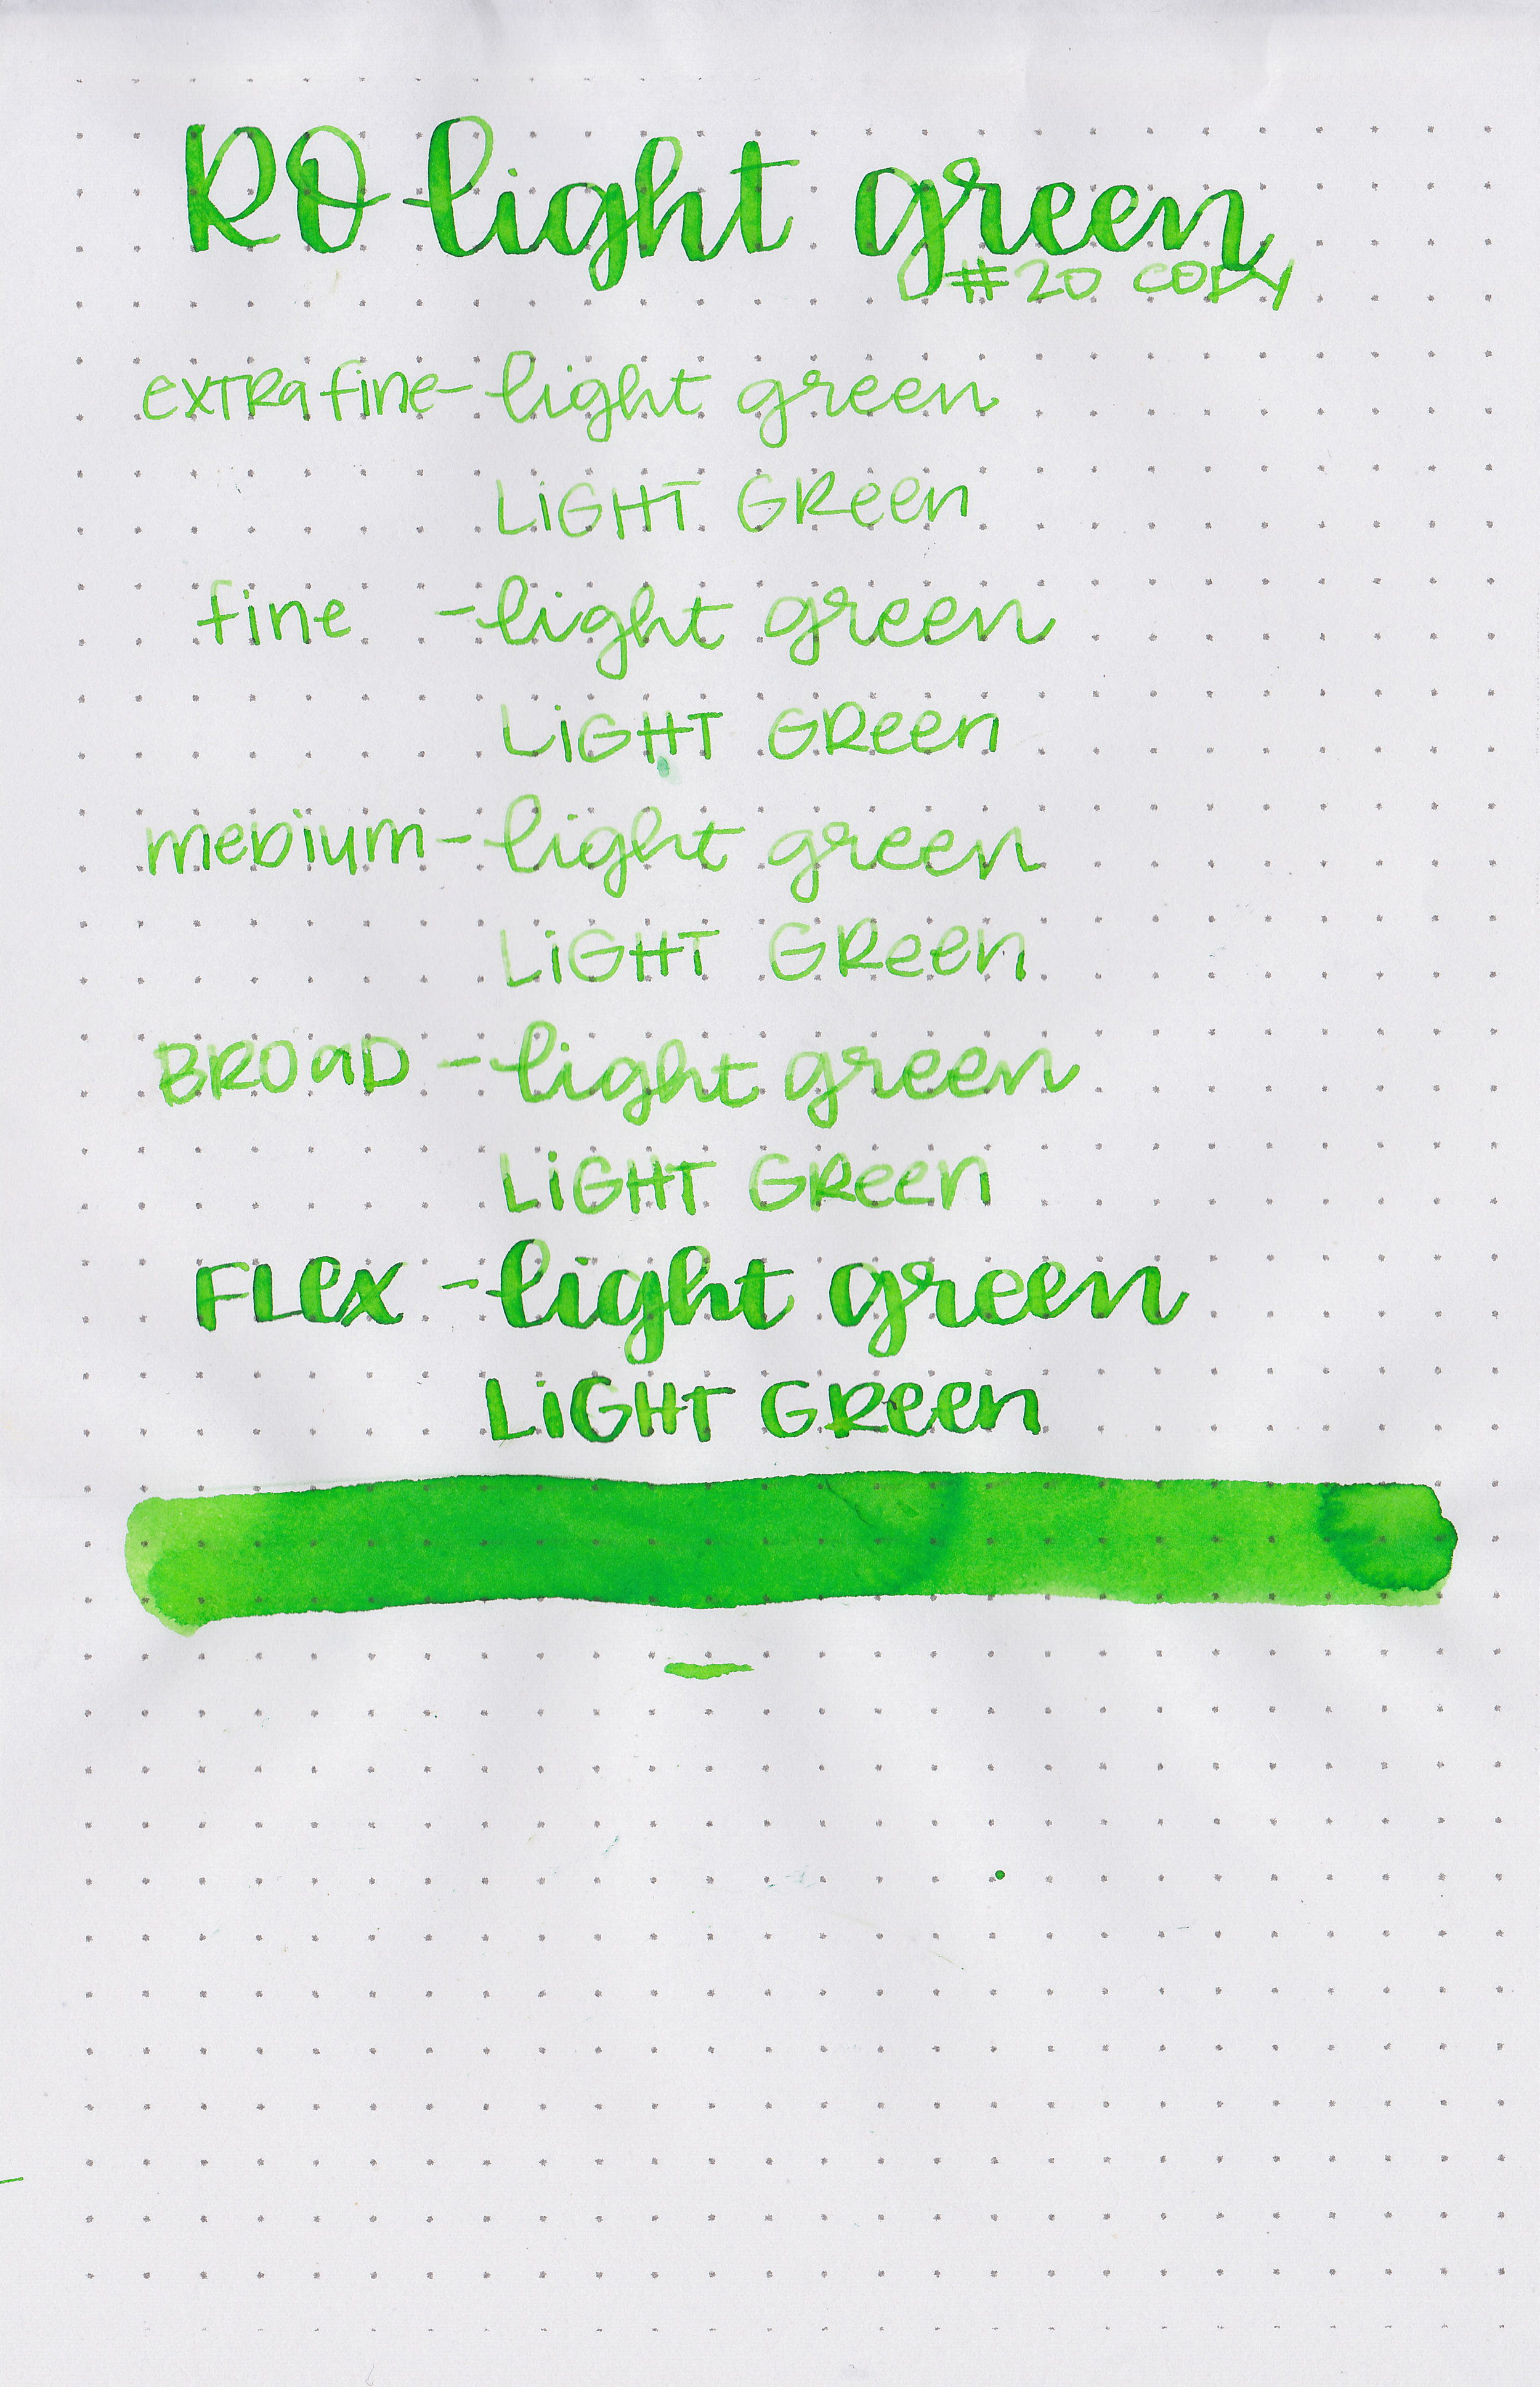 RO-light green
#20 COPY
extra fine-light green
LiGHT GReen
fine -light green
LiGHT GReen
meDium-light green
LiGHT GReen
BROaD -light green
LiGHT GReen
FLex -light green
LiGHT GReen